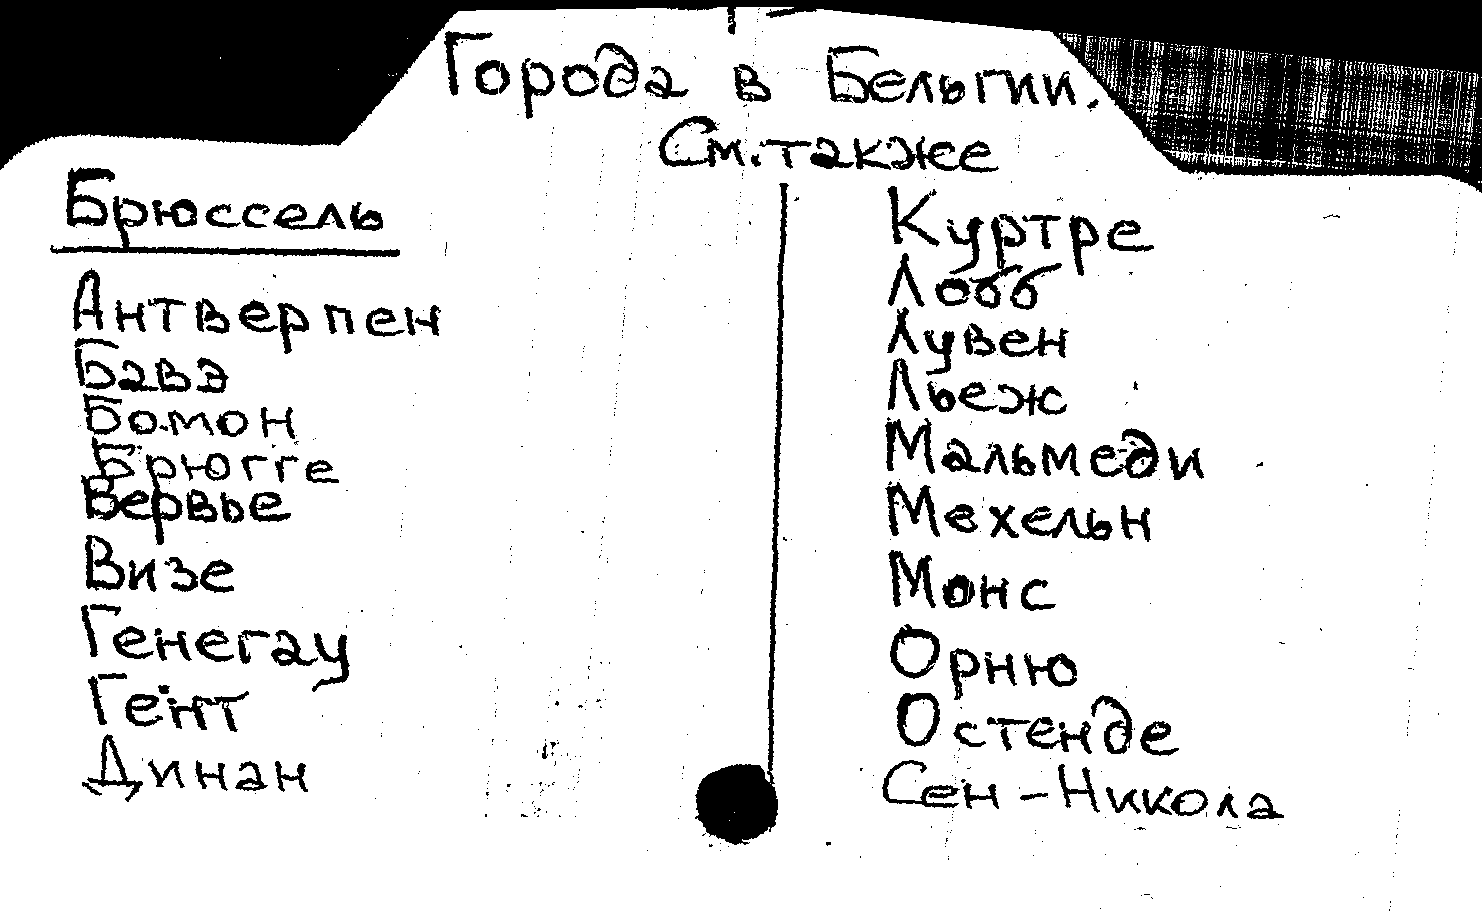 Города в Бельгии.
См. также
Брюссель
Антверпен
Бавэ
Бомон
Брюгге
Вервье
Визе
Генегау
Гент
Динан
Куртре
Лобб
Лувен
Льеж
Мальмеди
Мехельн
Монс
Орню
Остенде
Сен-Никола